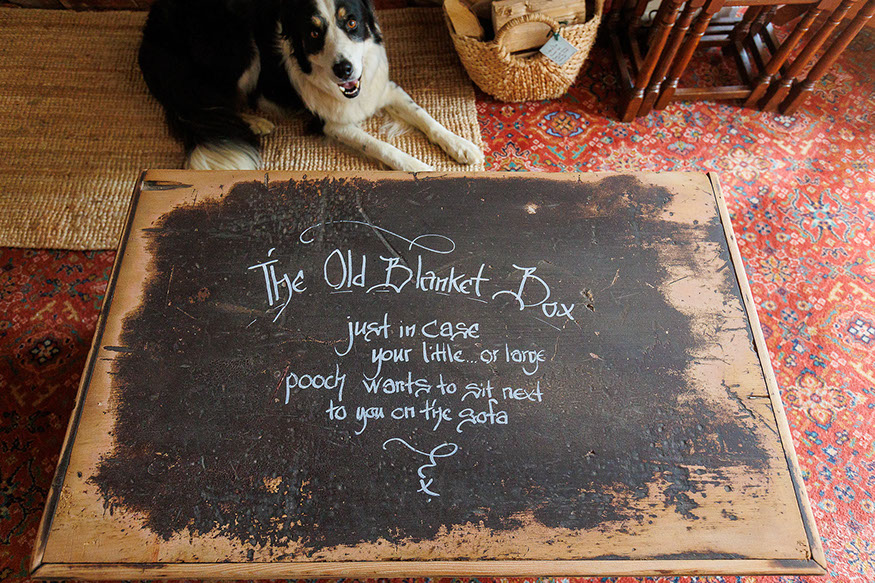 The Old Blanket Box
just in case
your little... or large
pooch wants to sit next
to you on the sofa
x